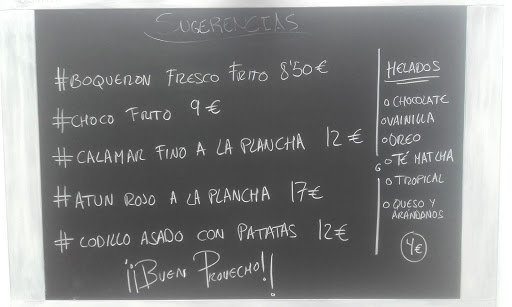 SUGERENCIAS
#BOQUERON FRESCO FRITO 8'50€
#CHOCO FRITO 9€
#CALAMAR FINO A LA PLANCHA 12€
#ATUN ROJO A LA PLANCHA 17€
#CODILLO ASADO CON PATATAS 12€
¡¡BUEN PROVECHO!!
HELADOS
o CHOCOLATE
o VAINILLA
o OREO
o TÉ MATCHA
o TROPICAL
o QUESO Y
ARANDANOS
4€